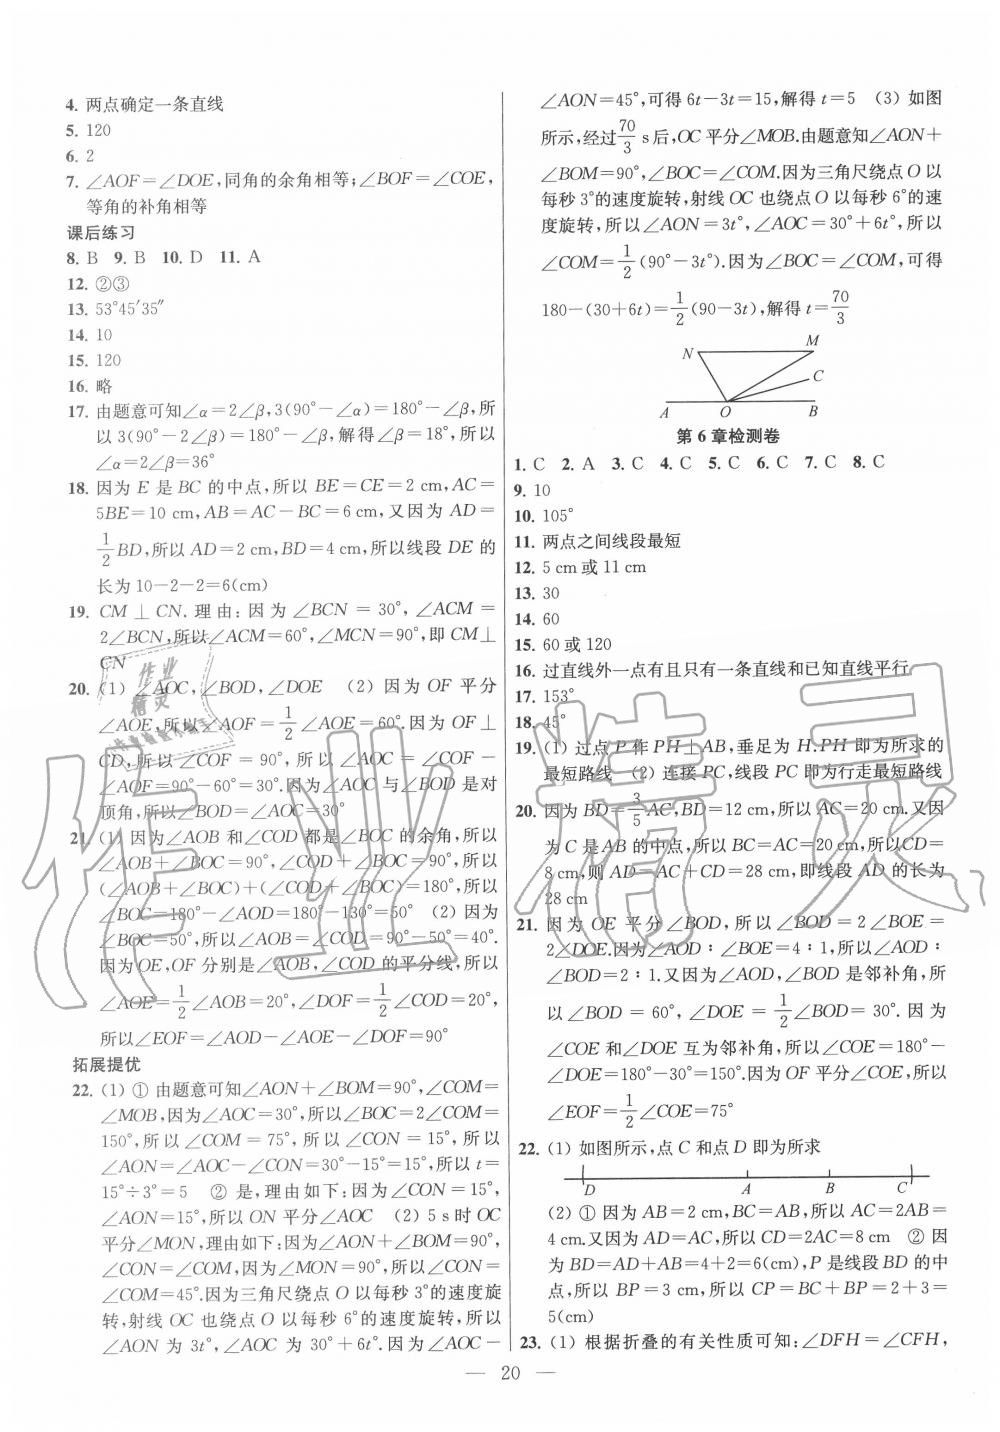 4. 两点确定一条直线
5. 120
6. 2
7. ∠AOF=∠DOE,同角的余角相等;∠BOF=∠COE,
等角的补角相等
课后练习
8. B 9. B 10. D 11. A
12. ②③
13. 53°45′35″
14. 10
15. 120
16. 略
17. 由题意可知∠α=2∠β,3(90°-∠α)=180°-∠β,所
以3(90°-2∠β)=180°-∠β,解得∠β=18°,所以
∠α=2∠β=36°
18. 因为 E 是 BC 的中点,所以 BE=CE=2 cm,AC=
5BE=10 cm,AB=AC-BC=6 cm,又因为 AD=
1/2 BD,所以 AD=2 cm,BD=4 cm,所以线段 DE 的
长为 10-2-2=6(cm)
19. CM⊥CN.理由:因为∠BCN=30°,∠ACM=
2∠BCN,所以∠ACM=60°,∠MCN=90°,即 CM⊥
CN
20. (1) ∠AOC,∠BOD,∠DOE (2) 因为 OF 平分
∠AOE,所以∠AOF=1/2∠AOE=60°.因为 OF⊥
CD,所以∠COF=90°,所以∠AOC=∠COF-
∠AOF=90°-60°=30°.因为∠AOC 与∠BOD 是对
顶角,所以∠BOD=∠AOC=30°
21. (1) 因为∠AOB 和∠COD 都是∠BOC 的余角,所以
∠AOB+∠BOC=90°,∠COD+∠BOC=90°,所以
(∠AOB+∠BOC)+(∠COD+∠BOC)=180°,所以
∠BOC=180°-∠AOD=180°-130°=50° (2) 因为
∠BOC=50°,所以∠AOB=∠COD=90°-50°=40°.
因为 OE,OF 分别是∠AOB,∠COD 的平分线,所以
∠AOE=1/2∠AOB=20°,∠DOF=1/2∠COD=20°,
所以∠EOF=∠AOD-∠AOE-∠DOF=90°
拓展提优
22. (1) ① 由题意可知∠AON+∠BOM=90°,∠COM=
∠MOB,因为∠AOC=30°,所以∠BOC=2∠COM=
150°,所以∠COM=75°,所以∠CON=15°,所以
∠AON=∠AOC-∠CON=30°-15°=15°,所以 t=
15°÷3°=5 ② 是,理由如下:因为∠CON=15°,
∠AON=15°,所以 ON 平分∠AOC (2) 5 s时 OC
平分∠MON,理由如下:因为∠AON+∠BOM=90°,
∠CON=∠COM,因为∠MON=90°,所以∠CON=
∠COM=45°.因为三角尺绕点 O 以每秒 3°的速度旋
转,射线 OC 也绕点 O 以每秒 6°的速度旋转,所以
∠AON 为 3t°,∠AOC 为 30°+6t°.因为∠AOC-
∠AON=45°,可得 6t-3t=15,解得 t=5 (3) 如图
所示,经过70/3 s后,OC 平分∠MOB.由题意知∠AON+
∠BOM=90°,∠BOC=∠COM.因为三角尺绕点 O 以
每秒 3°的速度旋转,射线 OC 也绕点 O 以每秒 6°的速
度旋转,所以∠AON=3t°,∠AOC=30°+6t°,所以
∠COM=1/2(90°-3t°).因为∠BOC=∠COM,可得
180-(30+6t)=1/2(90-3t),解得 t=70/3
N M
C
A O B
第 6 章检测卷
1. C 2. A 3. C 4. C 5. C 6. C 7. C 8. C
9. 10
10. 105°
11. 两点之间线段最短
12. 5 cm或 11 cm
13. 30
14. 60
15. 60 或 120
16. 过直线外一点有且只有一条直线和已知直线平行
17. 153°
18. 45°
19. (1) 过点 P 作 PH⊥AB,垂足为 H.PH 即为所求的
最短路线 (2) 连接 PC,线段 PC 即为行走最短路线
20. 因为 BD=3/5 AC,BD=12 cm,所以 AC=20 cm.又因
为 C 是 AB 的中点,所以 BC=AC=20 cm,所以CD=
8 cm,则 AD=AC+CD=28 cm,即线段 AD 的长为
28 cm
21. 因为 OE 平分∠BOD,所以∠BOD=2∠BOE=
2∠DOE.因为∠AOD∶∠BOE=4∶1,所以∠AOD∶
∠BOD=2∶1.又因为∠AOD,∠BOD 是邻补角,所
以∠BOD=60°,∠DOE=1/2∠BOD=30°.因为
∠COE 和∠DOE 互为邻补角,所以∠COE=180°-
∠DOE=180°-30°=150°.因为 OF 平分∠COE,所以
∠EOF=1/2∠COE=75°
22. (1) 如图所示,点 C 和点 D 即为所求
D A B C
(2) ① 因为 AB=2 cm,BC=AB,所以 AC=2AB=
4 cm.又因为 AD=AC,所以 CD=2AC=8 cm ② 因
为 BD=AD+AB=4+2=6(cm),P 是线段 BD 的中
点,所以 BP=3 cm,所以 CP=BC+BP=2+3=
5(cm)
23. (1) 根据折叠的有关性质可知:∠DFH=∠CFH,
— 20 —
作业精灵
作业
精灵